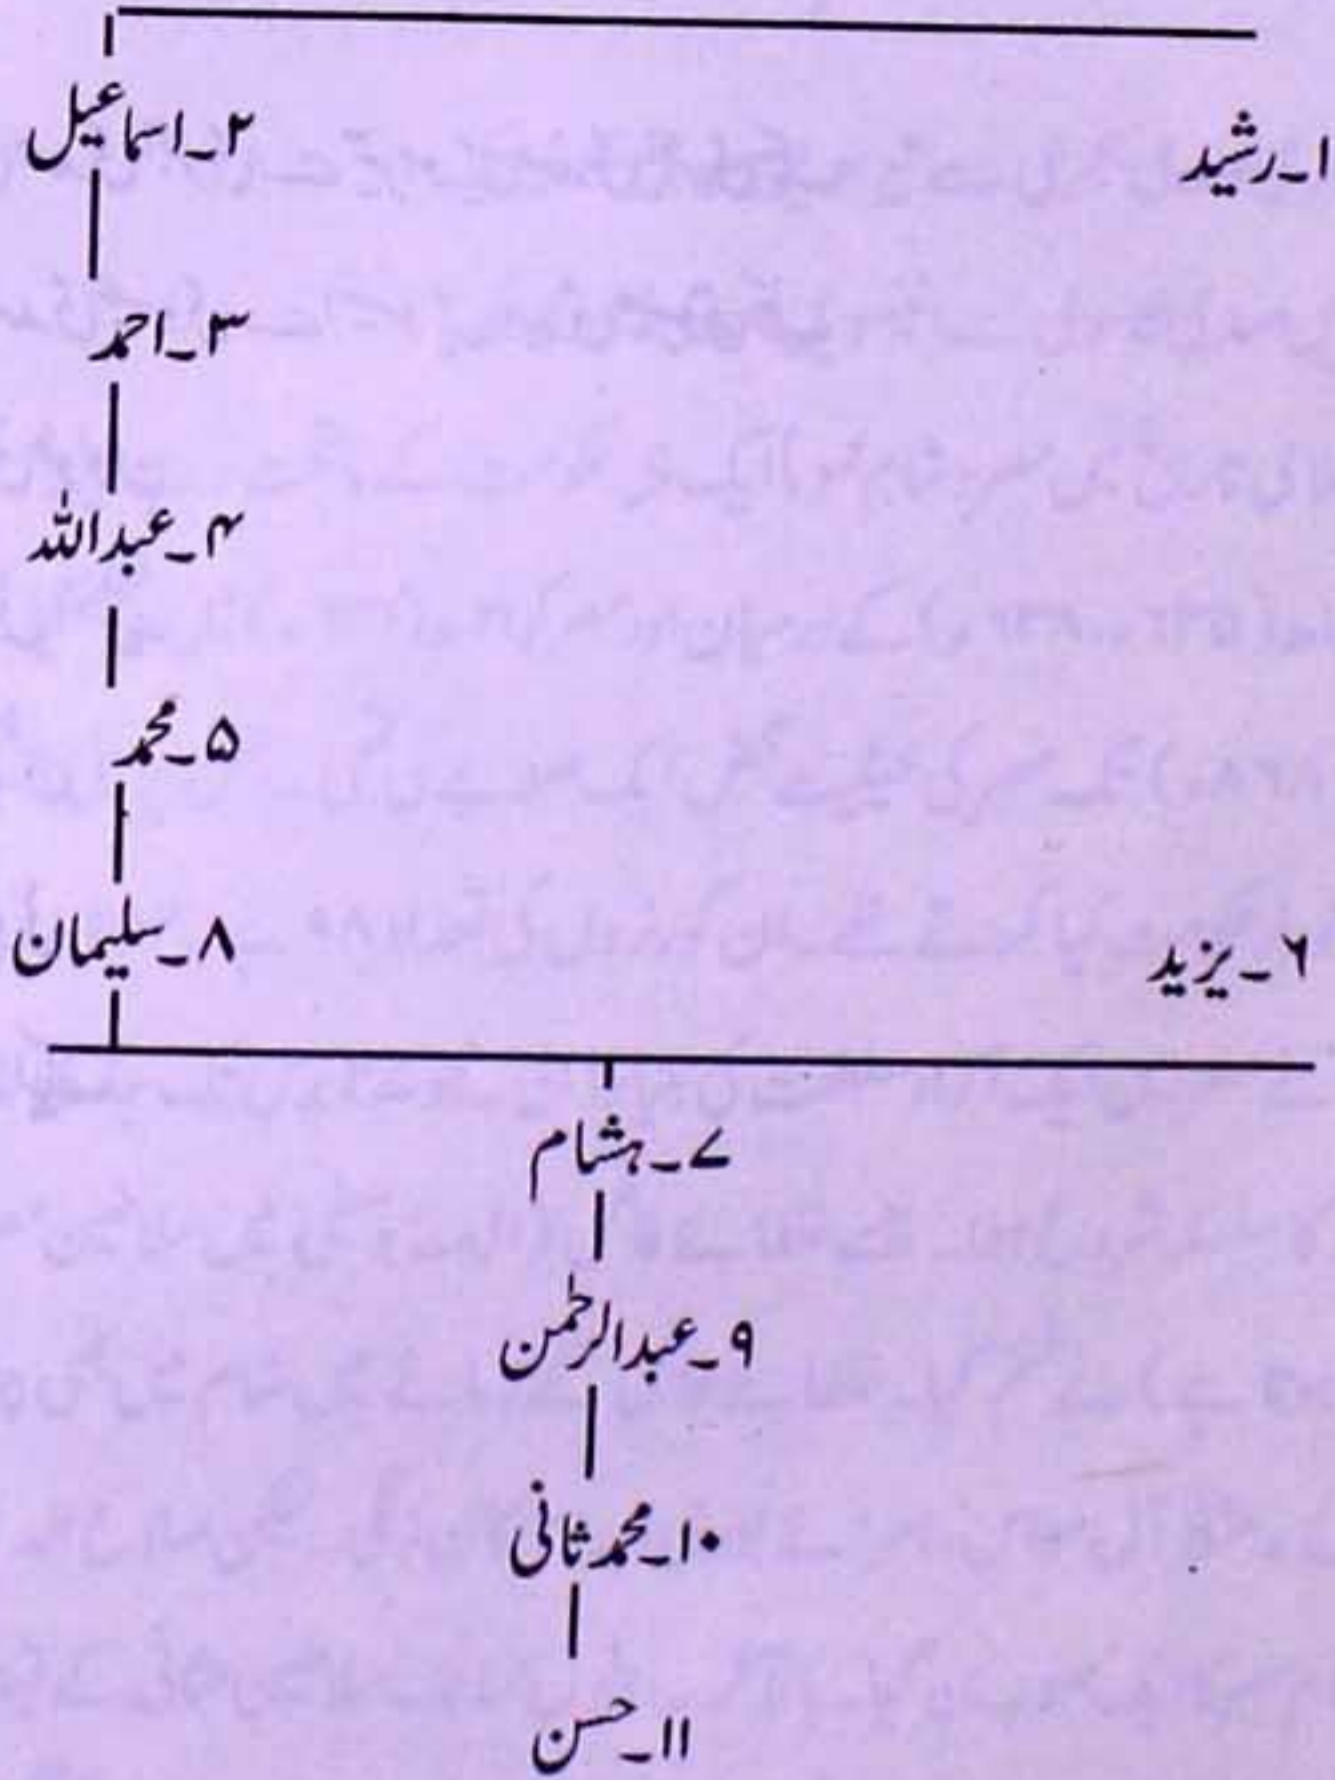 ۱۔رشید
۲۔اسماعیل
۳۔احمد
۴۔عبداللہ
۵۔محمد
۶۔یزید
۸۔سلیمان
۷۔ہشام
۹۔عبدالرحمٰن
۱۰۔محمد ثانی
۱۱۔حسن